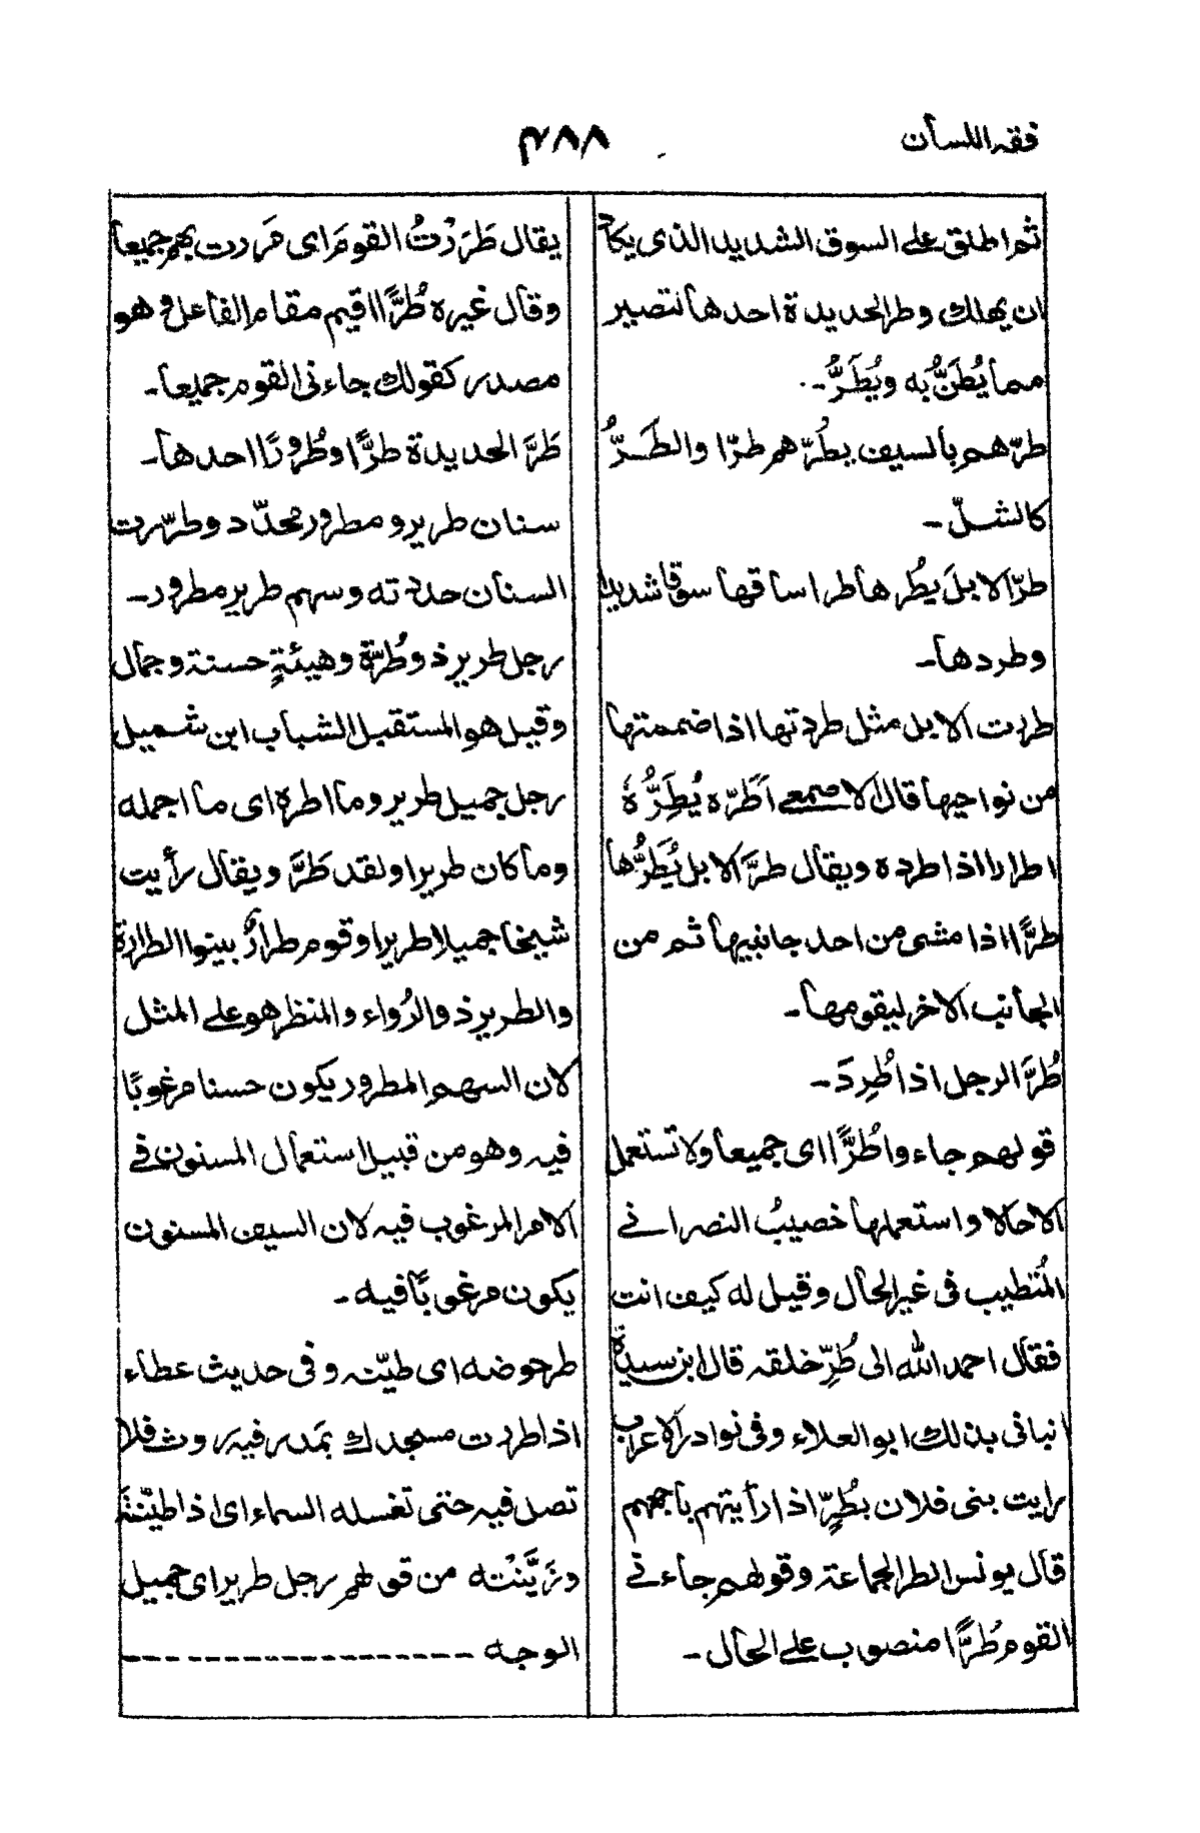 فقه اللسان
۴۸۸
ثم اطلق على السوق الشديد الذى يكاد
ان يهلك وطر الحديدة احدها لتصير
مما يُطَنُّ به ويُطَرُّ-
طرّهم بالسيف يطُرّهم طرّا والطَرُّ
كالشلّ-
طرّ الابلَ يطُرها طرا ساقها سوقا شديدا
وطردها-
طررت الابل مثل طردتها اذا ضممتها
من نواحيها قال الاصمعى اَطَرّه يُطِرُّهُ
اطرارا اذا طرده ويقال طرَّ الابل يُطَرُّها
طرًّا اذا مشى من احد جانبيها ثم من
الجانب الاخر ليقومها-
طُرَّ الرجل اذا طُرِدَ-
قولهم جاءوا طُرًّا اى جميعا ولا تستعمل
الا حالا واستعملها خصيبُ النصرانى
المُتطبب فى غير الحال وقيل له كيف انت
فقال احمد الله الى طُرِّ خلقه قال ابن سيدة
انبانى بذلك ابو العلاء وفى نوادر الاعراب
رايت بنى فلان بطُرٍّ اذا رأيتهم باجمعهم
قال يونس الطر الجماعة وقولهم جاءنى
القوم طُرًّا منصوب على الحال-
يقال طَرَرْتُ القومَ اى مَررت بهم جميعا
وقال غيره طُرًّا اقيم مقام الفاعل وهو
مصدر كقولك جاءنى القوم جميعا-
طَرَّ الحديدة طرًّا وطُرورًا احدها-
سنان طرير ومطرور محدّد وطرّرت
السنان حددته وسهم طرير مطرور-
رجل طرير ذو طُرّة وهيئةٍ حسنة وجمال
وقيل هو المستقبل الشباب ابن شميل
رجل جميل طرير وما اطره اى ما اجمله
وما كان طريرا ولقد طَرَّ ويقال رأيت
شيخا جميلا طريرا وقوم طرارٌ بينوا الطرارة
والطرير ذو الرُواء والمنظر هو على المثل
لان السهم المطرور يكون حسنا مرغوبًا
فيه وهو من قبيل استعمال المسنون فى
الامر المرغوب فيه لان السيف المسنون
يكون مرغوبًا فيه-
طر حوضه اى طيّنه وفى حديث عطاء
اذا طررت مسجدك بمَدر فيه روث فلا
تصل فيه حتى تغسله السماء اى اذا طيّنتَه
وزَيَّنْته من قولهم رجل طرير اى جميل
الوجه